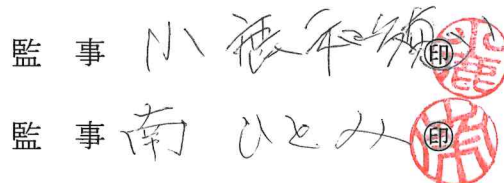 監 事 小鹿和領 ㊞
監 事 南 ひとみ ㊞